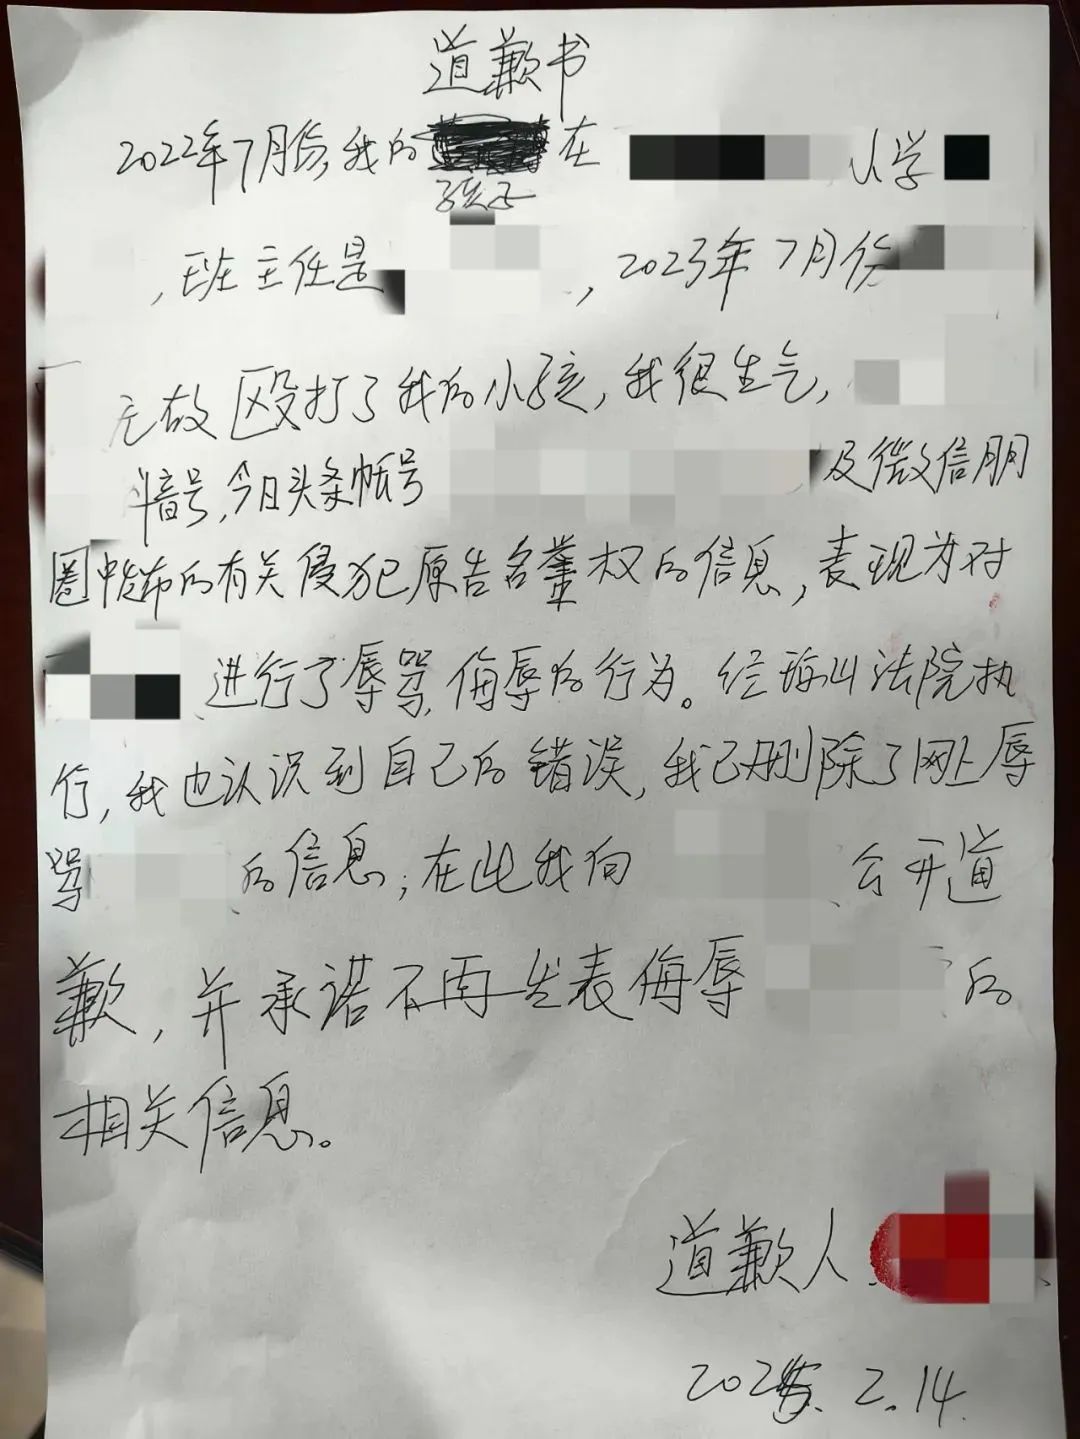 道歉书
2022年7月份,我的孩子在 小学
,班主任是 ,2023年7月份
无故殴打了我的小孩,我很生气,
抖音号,今日头条帐号 及微信朋
圈中发布的有关侵犯原告名誉权的信息,表现为对
进行了辱骂,侮辱的行为。经 法院执
行,我也认识到自己的错误,我已删除了网上辱
骂 的信息;在此我向 公开道
歉,并承诺不再发表侮辱 的
相关信息。
道歉人
2025.2.14